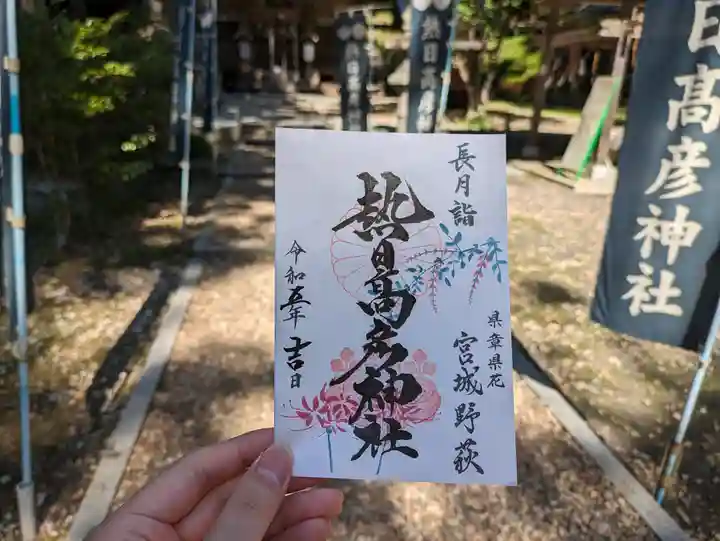 長月詣
熱日高彦神社
県章県花
宮城野萩
令和五年吉日
日高彦神社
熱日高彦